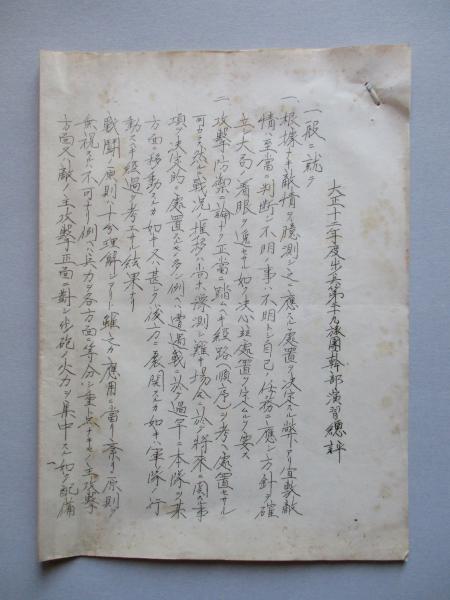 大正十三年度歩兵第十九旅團幹部演習總評
一般ニ就テ
一、根據ナキ敵情ヲ臆測シ之ニ應スル處置ヲ決定スル弊アリ宜敷敵
情ハ至當ニ判断シ不明ノ事ハ不明トシ自己ノ任務ニ應シ方針ヲ確
立シ大局ニ着眼シ進テ如ク決心竝處置ヲ定ムルヲ要ス
二、攻撃防禦ニ論ナク正當ニ踏ムヘキ經路(順序)ヲ考ヘ處置セサル
可カラス然ルニ戦況ノ推移ハ尚ホ豫測シ難キ場合ニ於テ将來ニ関スル事
項ヲ決定的ニ處置スルモノ多シ例ヘハ遭遇戦ニ於テ過早ニ本隊ヲ某
方面ニ移動スルカ如キ又甚シク後方ニ展開スルカ如キハ軍隊ノ行
動スヘキ經過ヲ考エサル結果ナリ
戦闘ノ原則ハ十分理解シアリト雖モ之カ應用ニ當リ往々原則ヲ
無視スルハ不可ナリ例ヘハ兵力ヲ各方面ニ等分シ重點ナキモノ主攻撃
方面又ハ敵ノ主攻撃正面ニ對シ歩砲ノ火力ヲ集中スル如ク配備